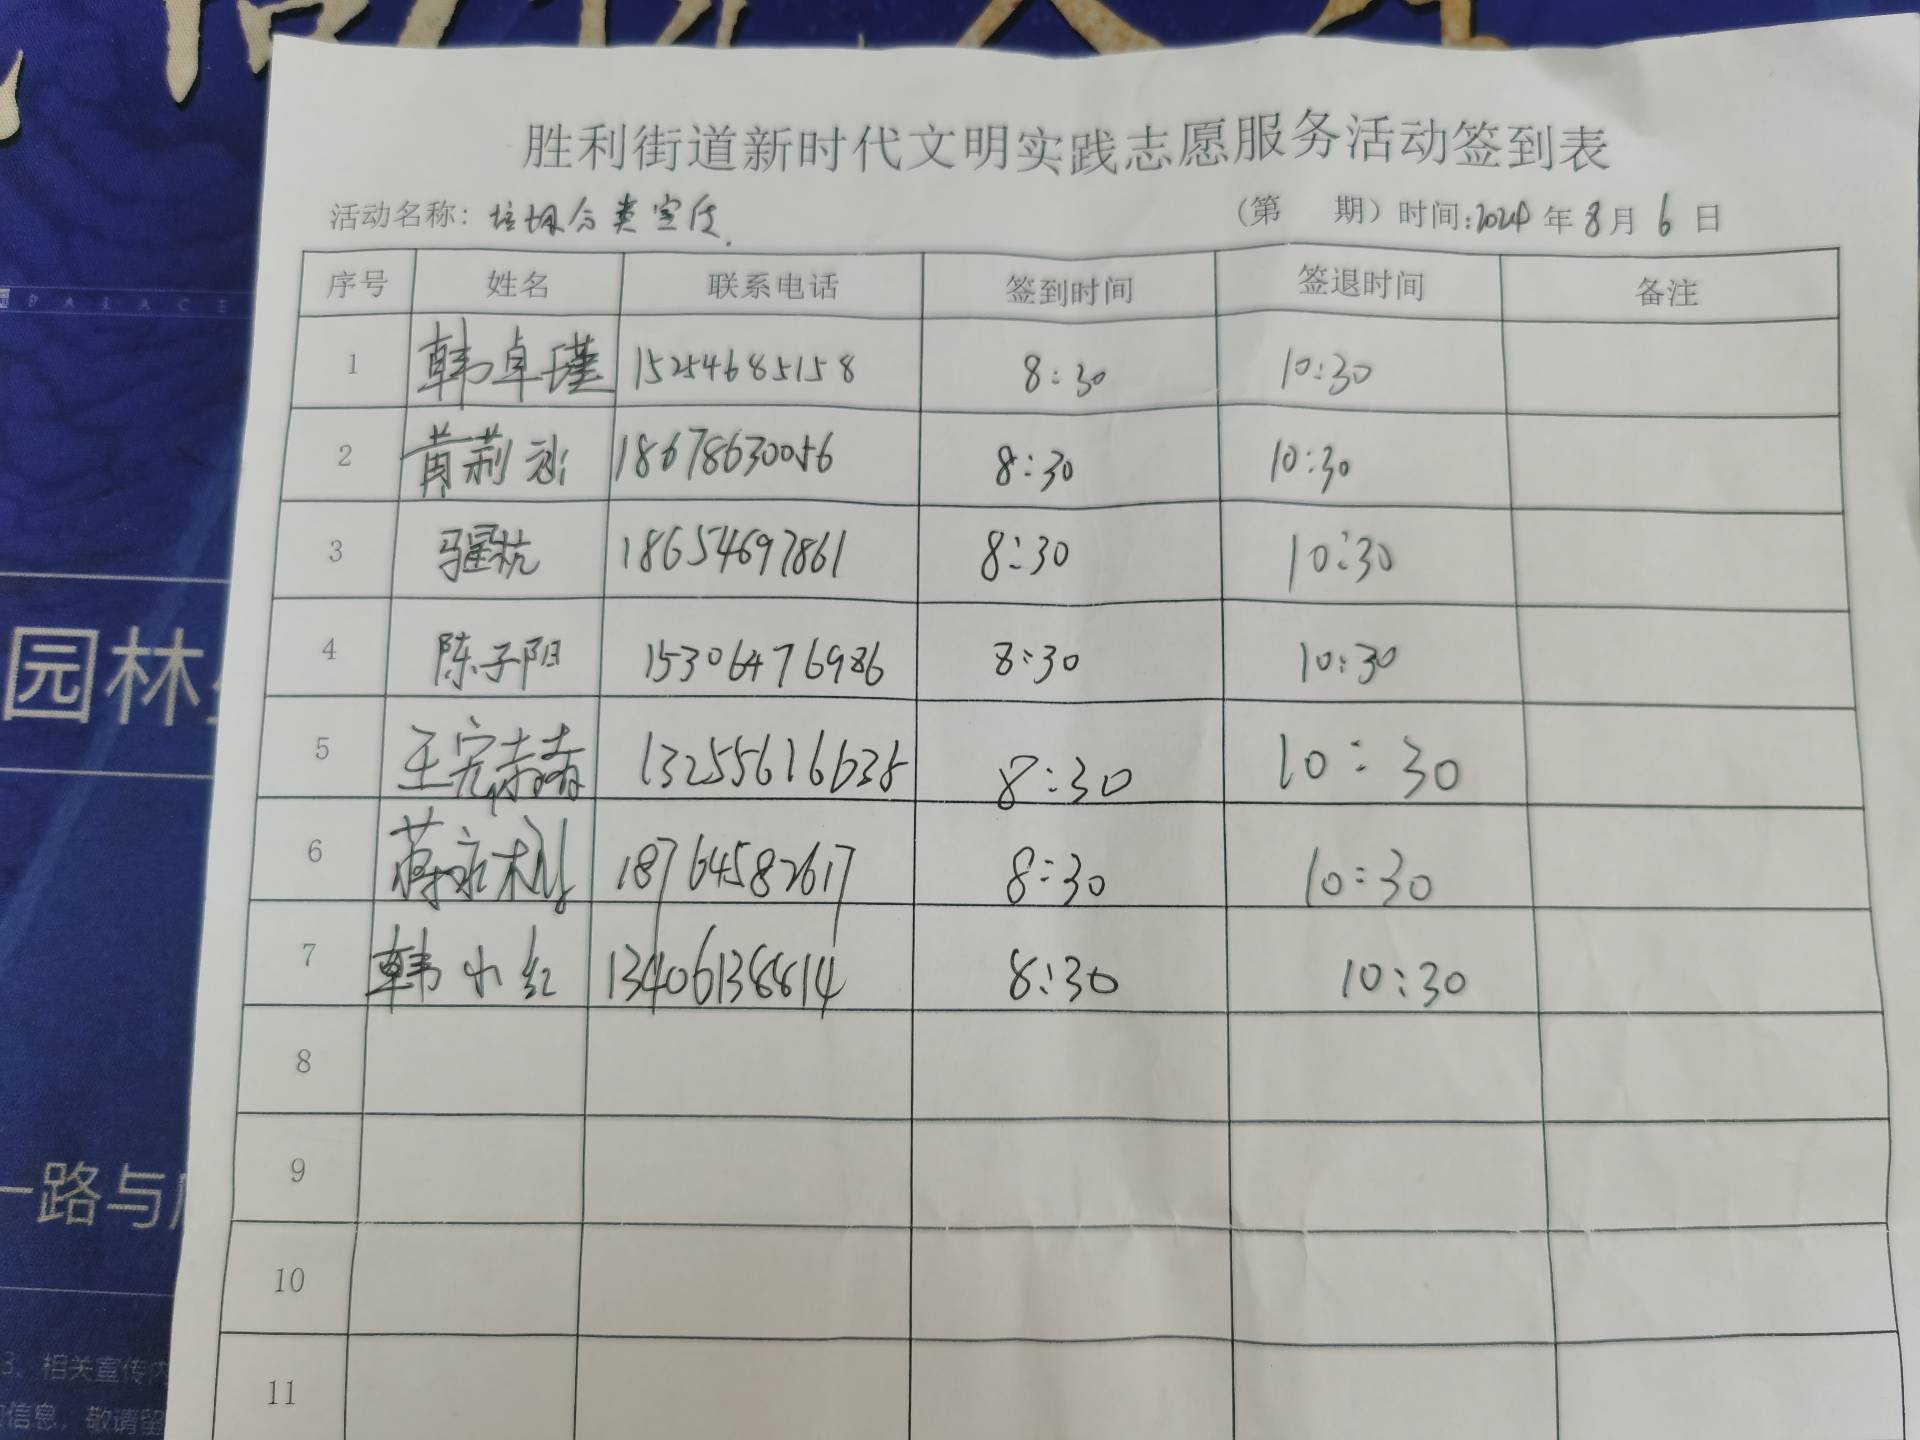 PALACE
园林
一路与
3、相关宣传内
信息，敬请留
胜利街道新时代文明实践志愿服务活动签到表
活动名称：垃圾分类宣传. （第 期）时间:2024年8月6日
序号 姓名 联系电话 签到时间 签退时间 备注
1 韩卓瑾 15254685158 8:30 10:30
2 黄莉 18678630056 8:30 10:30
3 18654697861 8:30 10:30
4 陈子阳 15306476986 8:30 10:30
5 王 13255616638 8:30 10:30
6 18764582617 8:30 10:30
7 韩小红 13406138814 8:30 10:30
8
9
10
11